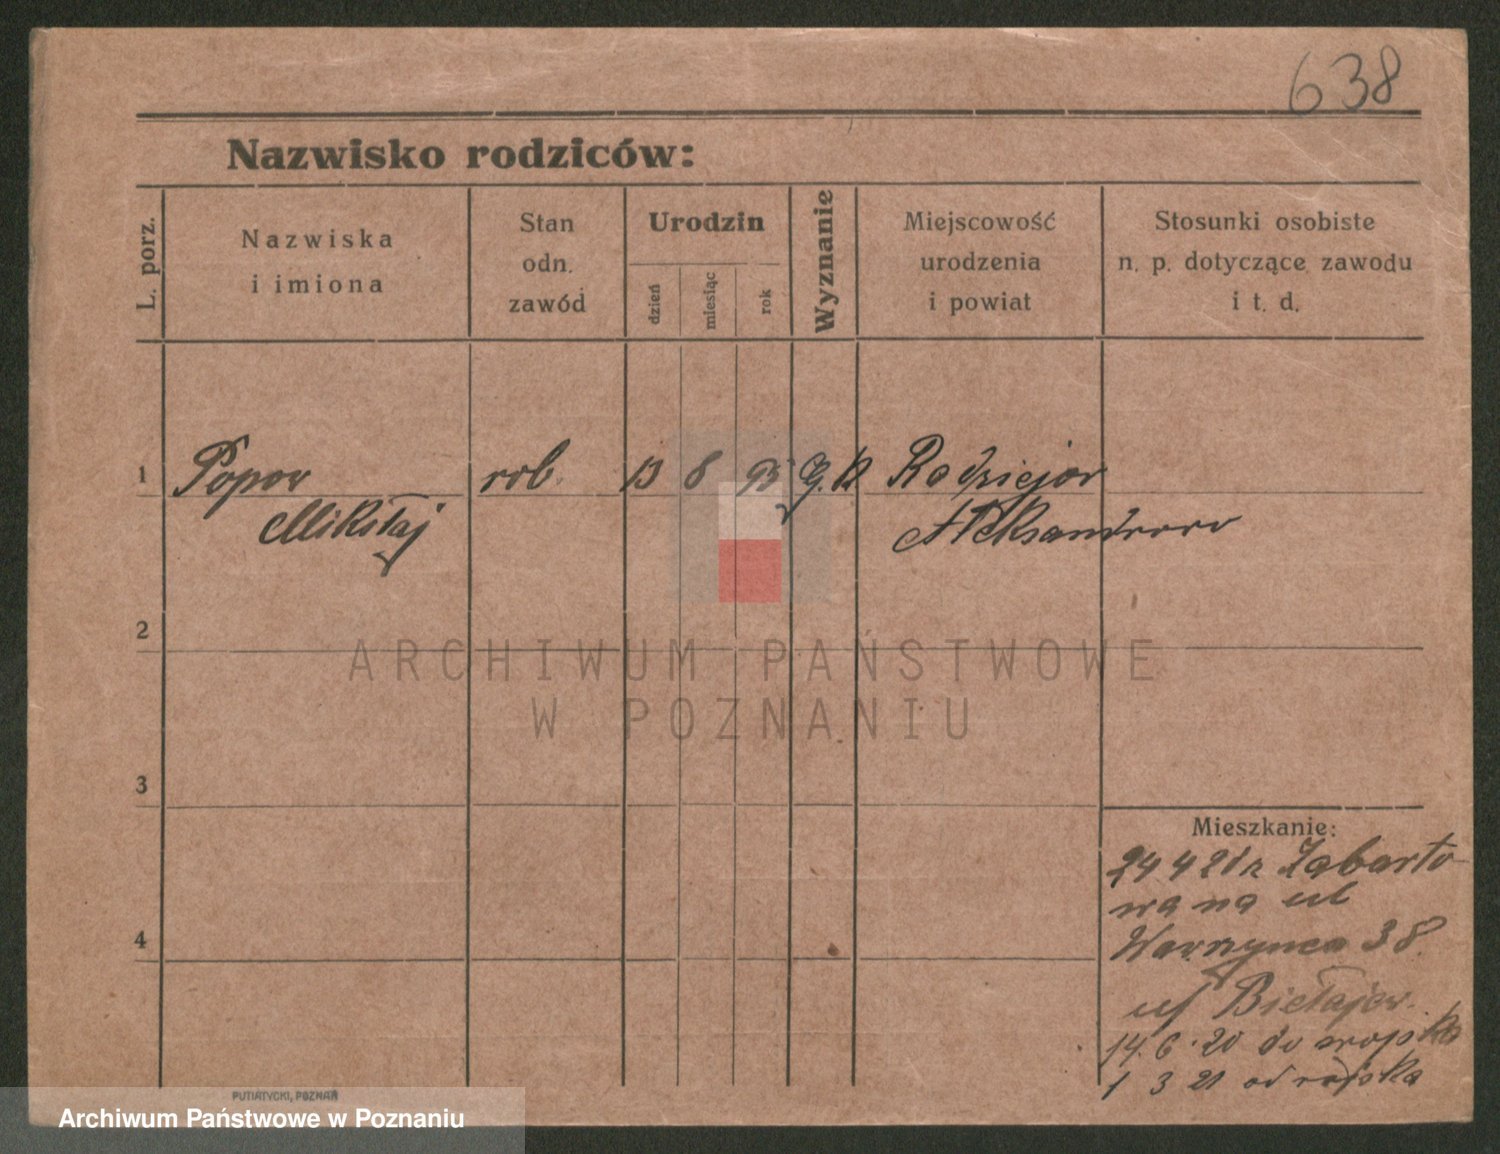 638
Nazwisko rodziców:
L. porz.
Nazwiska
i imiona
Stan
odn.
zawód
Urodzin
dzień
miesiąc
rok
Wyznanie
Miejscowość
urodzenia
i powiat
Stosunki osobiste
n. p. dotyczące zawodu
i t. d.
1 Popov rob. 13 8 95 Radziejov
Mikołaj Aleksandrovo
2
ARCHIWUM PAŃSTWOWE
W POZNANIU
3
Mieszkanie:
24 4 21 z Zabarto
wa na ul
4
Wawrzynca 38
14. 6. 20 do wojska
1 3 21 od wojska
PUTIATYCKI, POZNAŃ
Archiwum Państwowe w Poznaniu